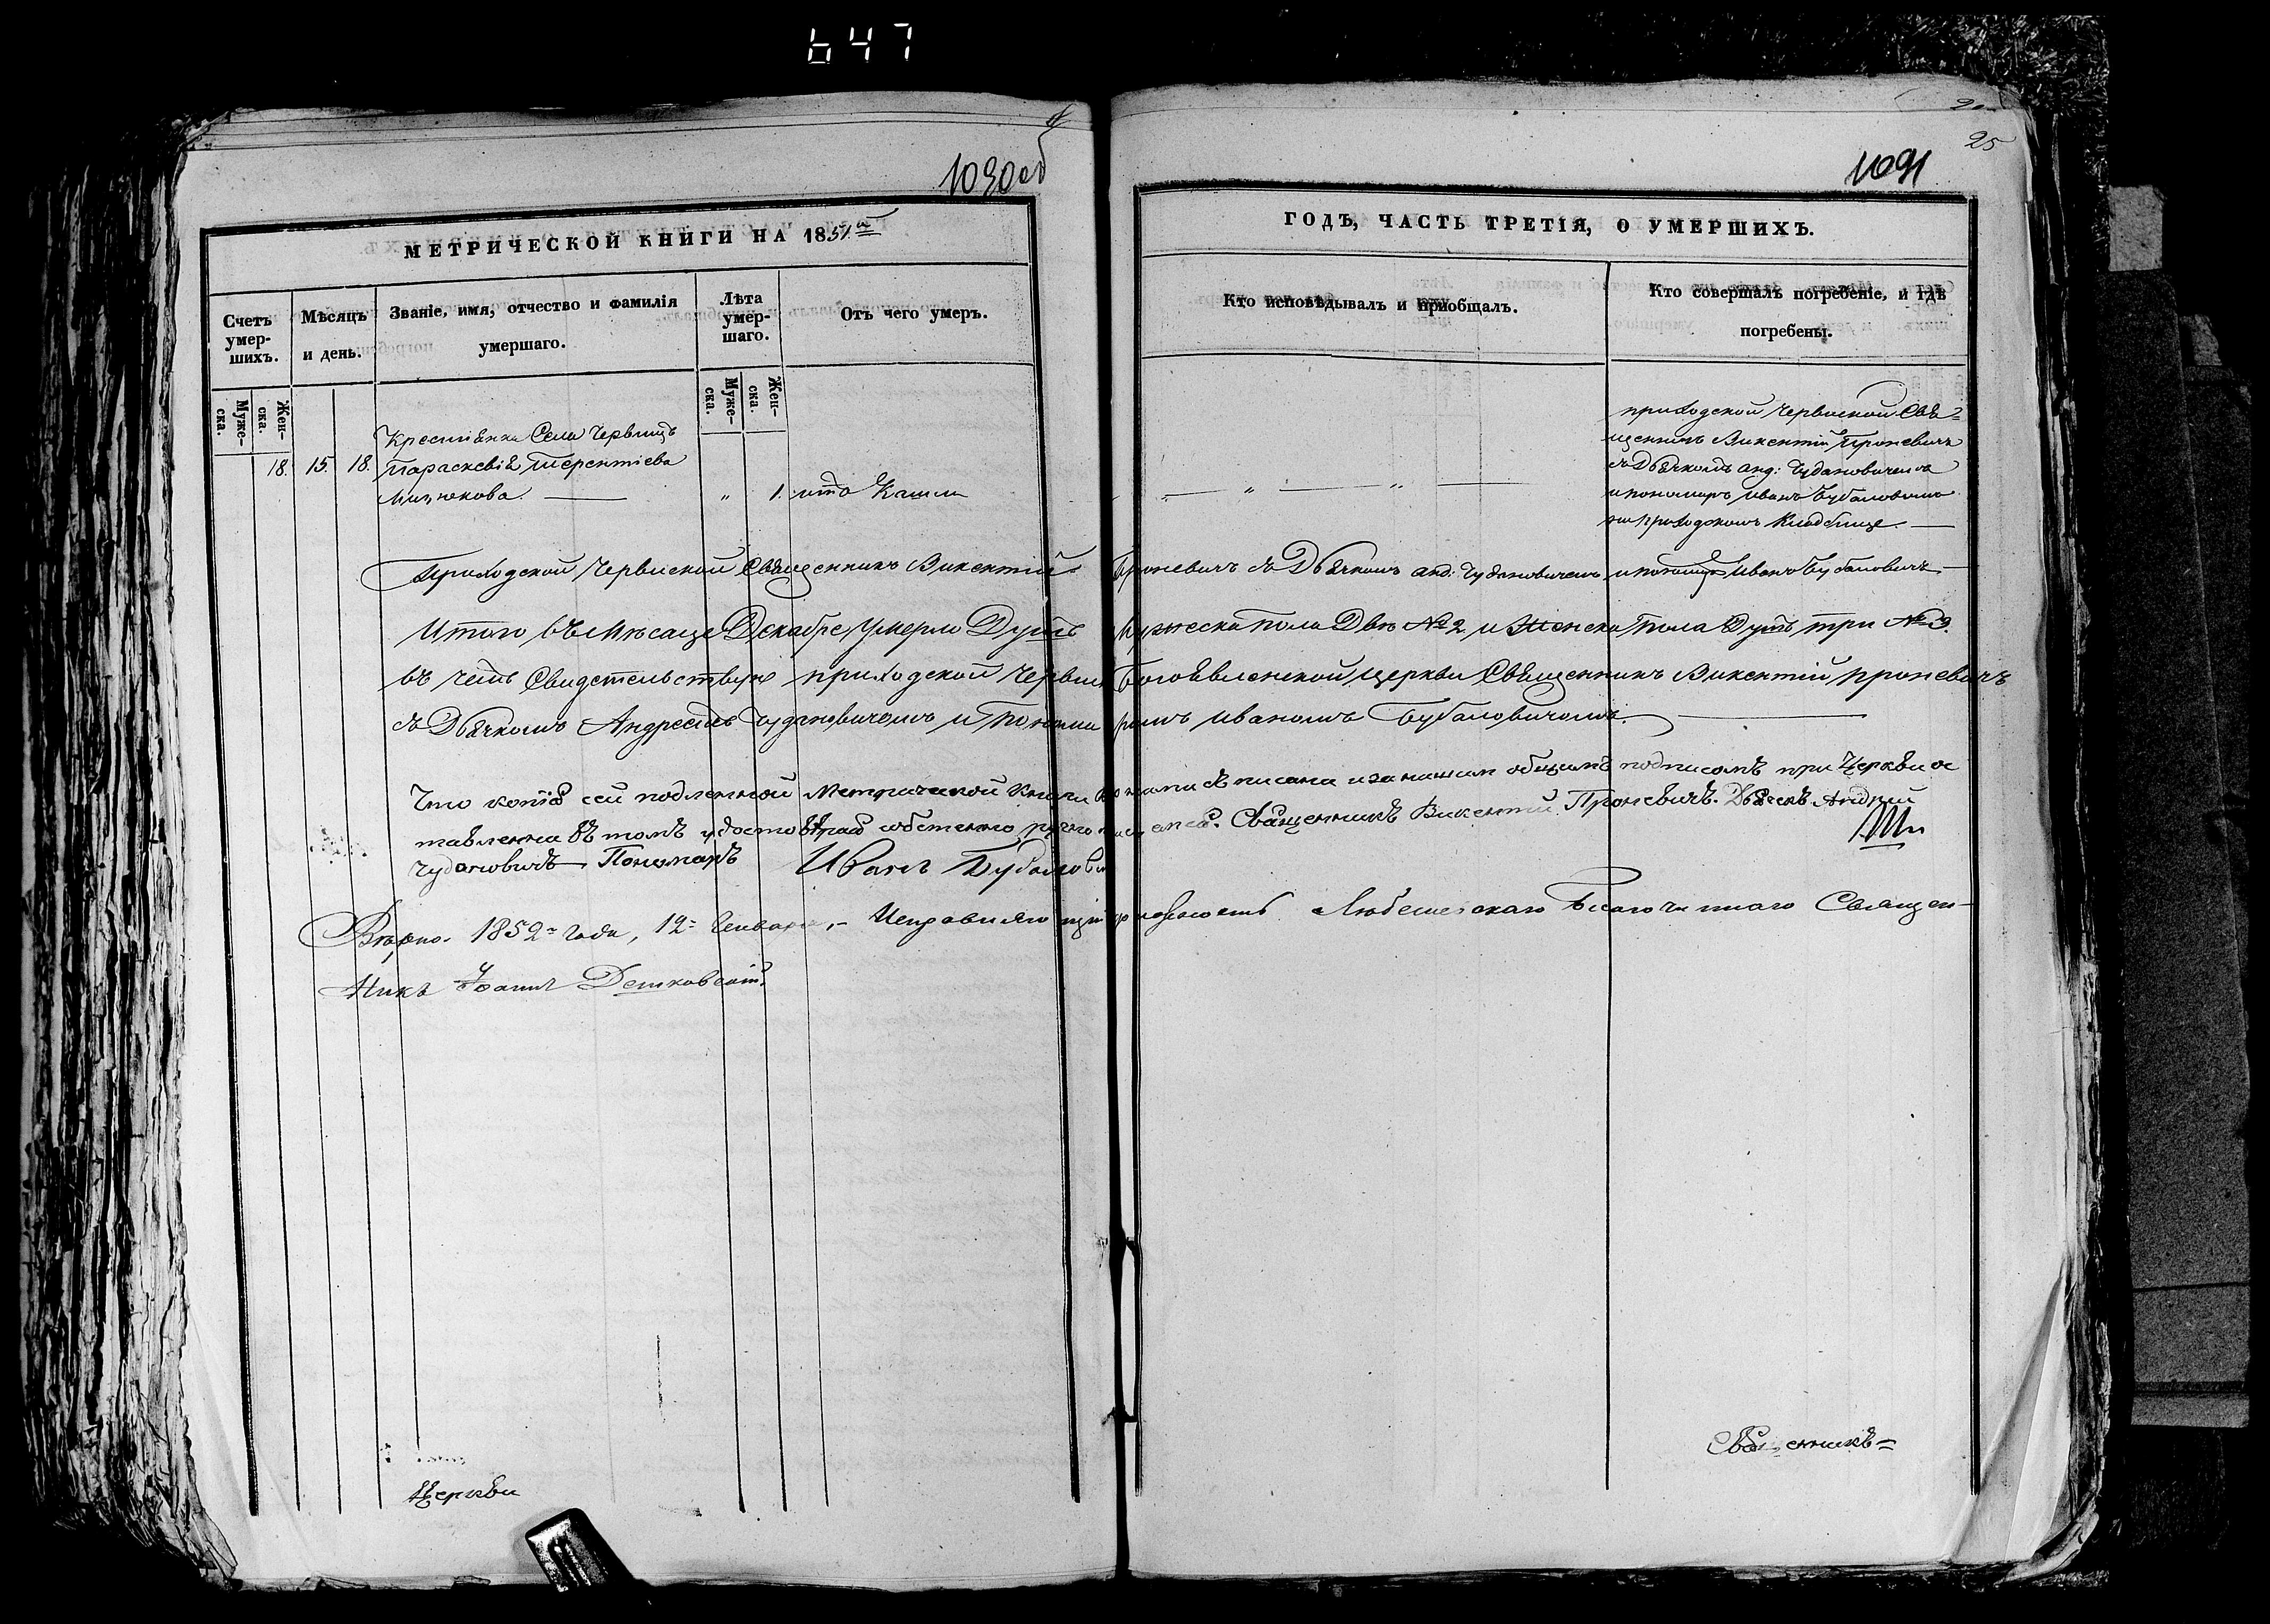 647
1090об
25
1091
МЕТРИЧЕСКОЙ КНИГИ НА 1851й
ГОДЪ, ЧАСТЬ ТРЕТІЯ, О УМЕРШИХЪ.
Счетъ умер-шихъ.
Мѣсяцъ и день.
Званіе, имя, отчество и фамилія умершаго.
Лѣта умер-шаго.
Отъ чего умеръ.
Кто исповѣдывалъ и приобщалъ.
Кто совершалъ погребеніе, и гдѣ погребены.
Муже-ска.
Жен-ска.
Муже-ска.
Жен-ска.
18. 15. 18.
Крестіянка Села Червищъ
Параскевія Терентіева
„ 1. отъ Кашли
— „ — „ —
приходской Червиской Свя-
щенникъ Викентій Проневичъ
съ Дьячкомъ анд: Чудановичемъ
и пономаръ Иванъ Бубановичъ
на приходскомъ Кладбище
Приходской Червиской Священникъ Викентій Проневичъ съ Дьячкомъ анд: Чудановичемъ и пономаръ Иванъ Бубановичъ
Итого въ Мѣсаце Декабре Умерло Душъ Мужеска пола Двѣ №2 и Женска Пола Душъ три №3.
въ чемъ Свидетельствую приходской Червиской Богоявленской церкви Священникъ Викентій Проневичъ
съ Дьячкомъ Андреемъ Чудановичемъ и Пономаромъ Иваномъ Бубановичомъ.
Что копія сей подленной Метрической Книги писана и за нашим общимъ подписомъ при Церкви ос
тавленна въ томъ собственно ручно Священникъ Викентій Проневичъ. Дьячекъ Андрей
Чудановичъ Пономаръ Иванъ Бубанович
Вѣрно. 1852 года, 12 Генваря, – Исправляющій должность Любешовскаго Благочиннаго Священ-
никъ Іоаннъ
Церкви
Священникъ